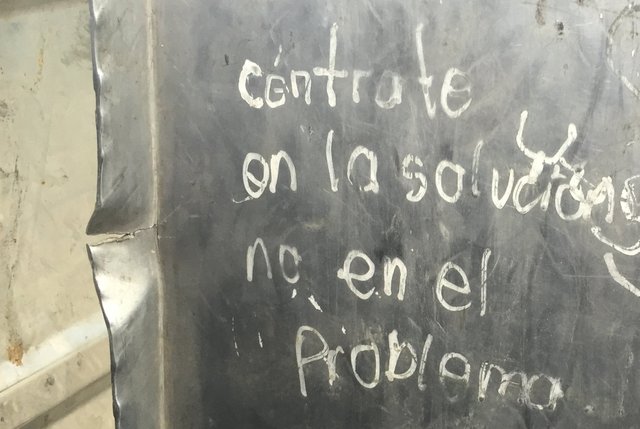 céntrate
en la solución
no en el
Problema.